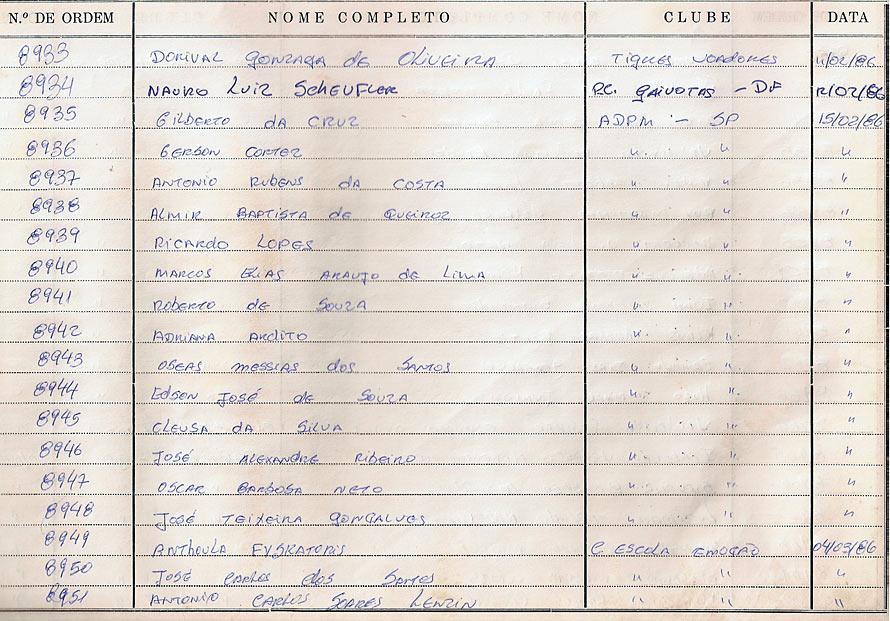 N.º DE ORDEM NOME COMPLETO CLUBE DATA
8933 DORIVAL GONZAGA de OLIVEIRA TIGRES VOADORES 11/02/86
8934 NAURO LUIZ SCHEUFLER P.C. GAIVOTAS - DF 12/02/86
8935 GILBERTO da CRUZ ADPM - SP 15/02/86
8936 GERSON CORTEZ " " "
8937 ANTONIO RUBENS da COSTA " " "
8938 ALMIR BAPTISTA de QUEIROZ " " "
8939 RICARDO LOPES " " "
8940 MARCOS ELIAS ARAUJO de LIMA " " "
8941 ROBERTO de SOUZA " " "
8942 ADRIANA ARDITO " " "
8943 OSEAS MESSIAS dos SANTOS " " "
8944 EDSON JOSÉ de SOUZA " " "
8945 CLEUSA da SILVA " " "
8946 JOSÉ ALEXANDRE RIBEIRO " " "
8947 OSCAR BARBOSA NETO " " "
8948 JOSÉ TEIXEIRA GONÇALVES " " "
8949 ANTHOULA FYSKATORIS C ESCOLA EMOÇÃO 04/03/86
8950 JOSÉ CARLOS dos SANTOS " " "
8951 ANTONIO CARLOS SOARES LENZIN " " "